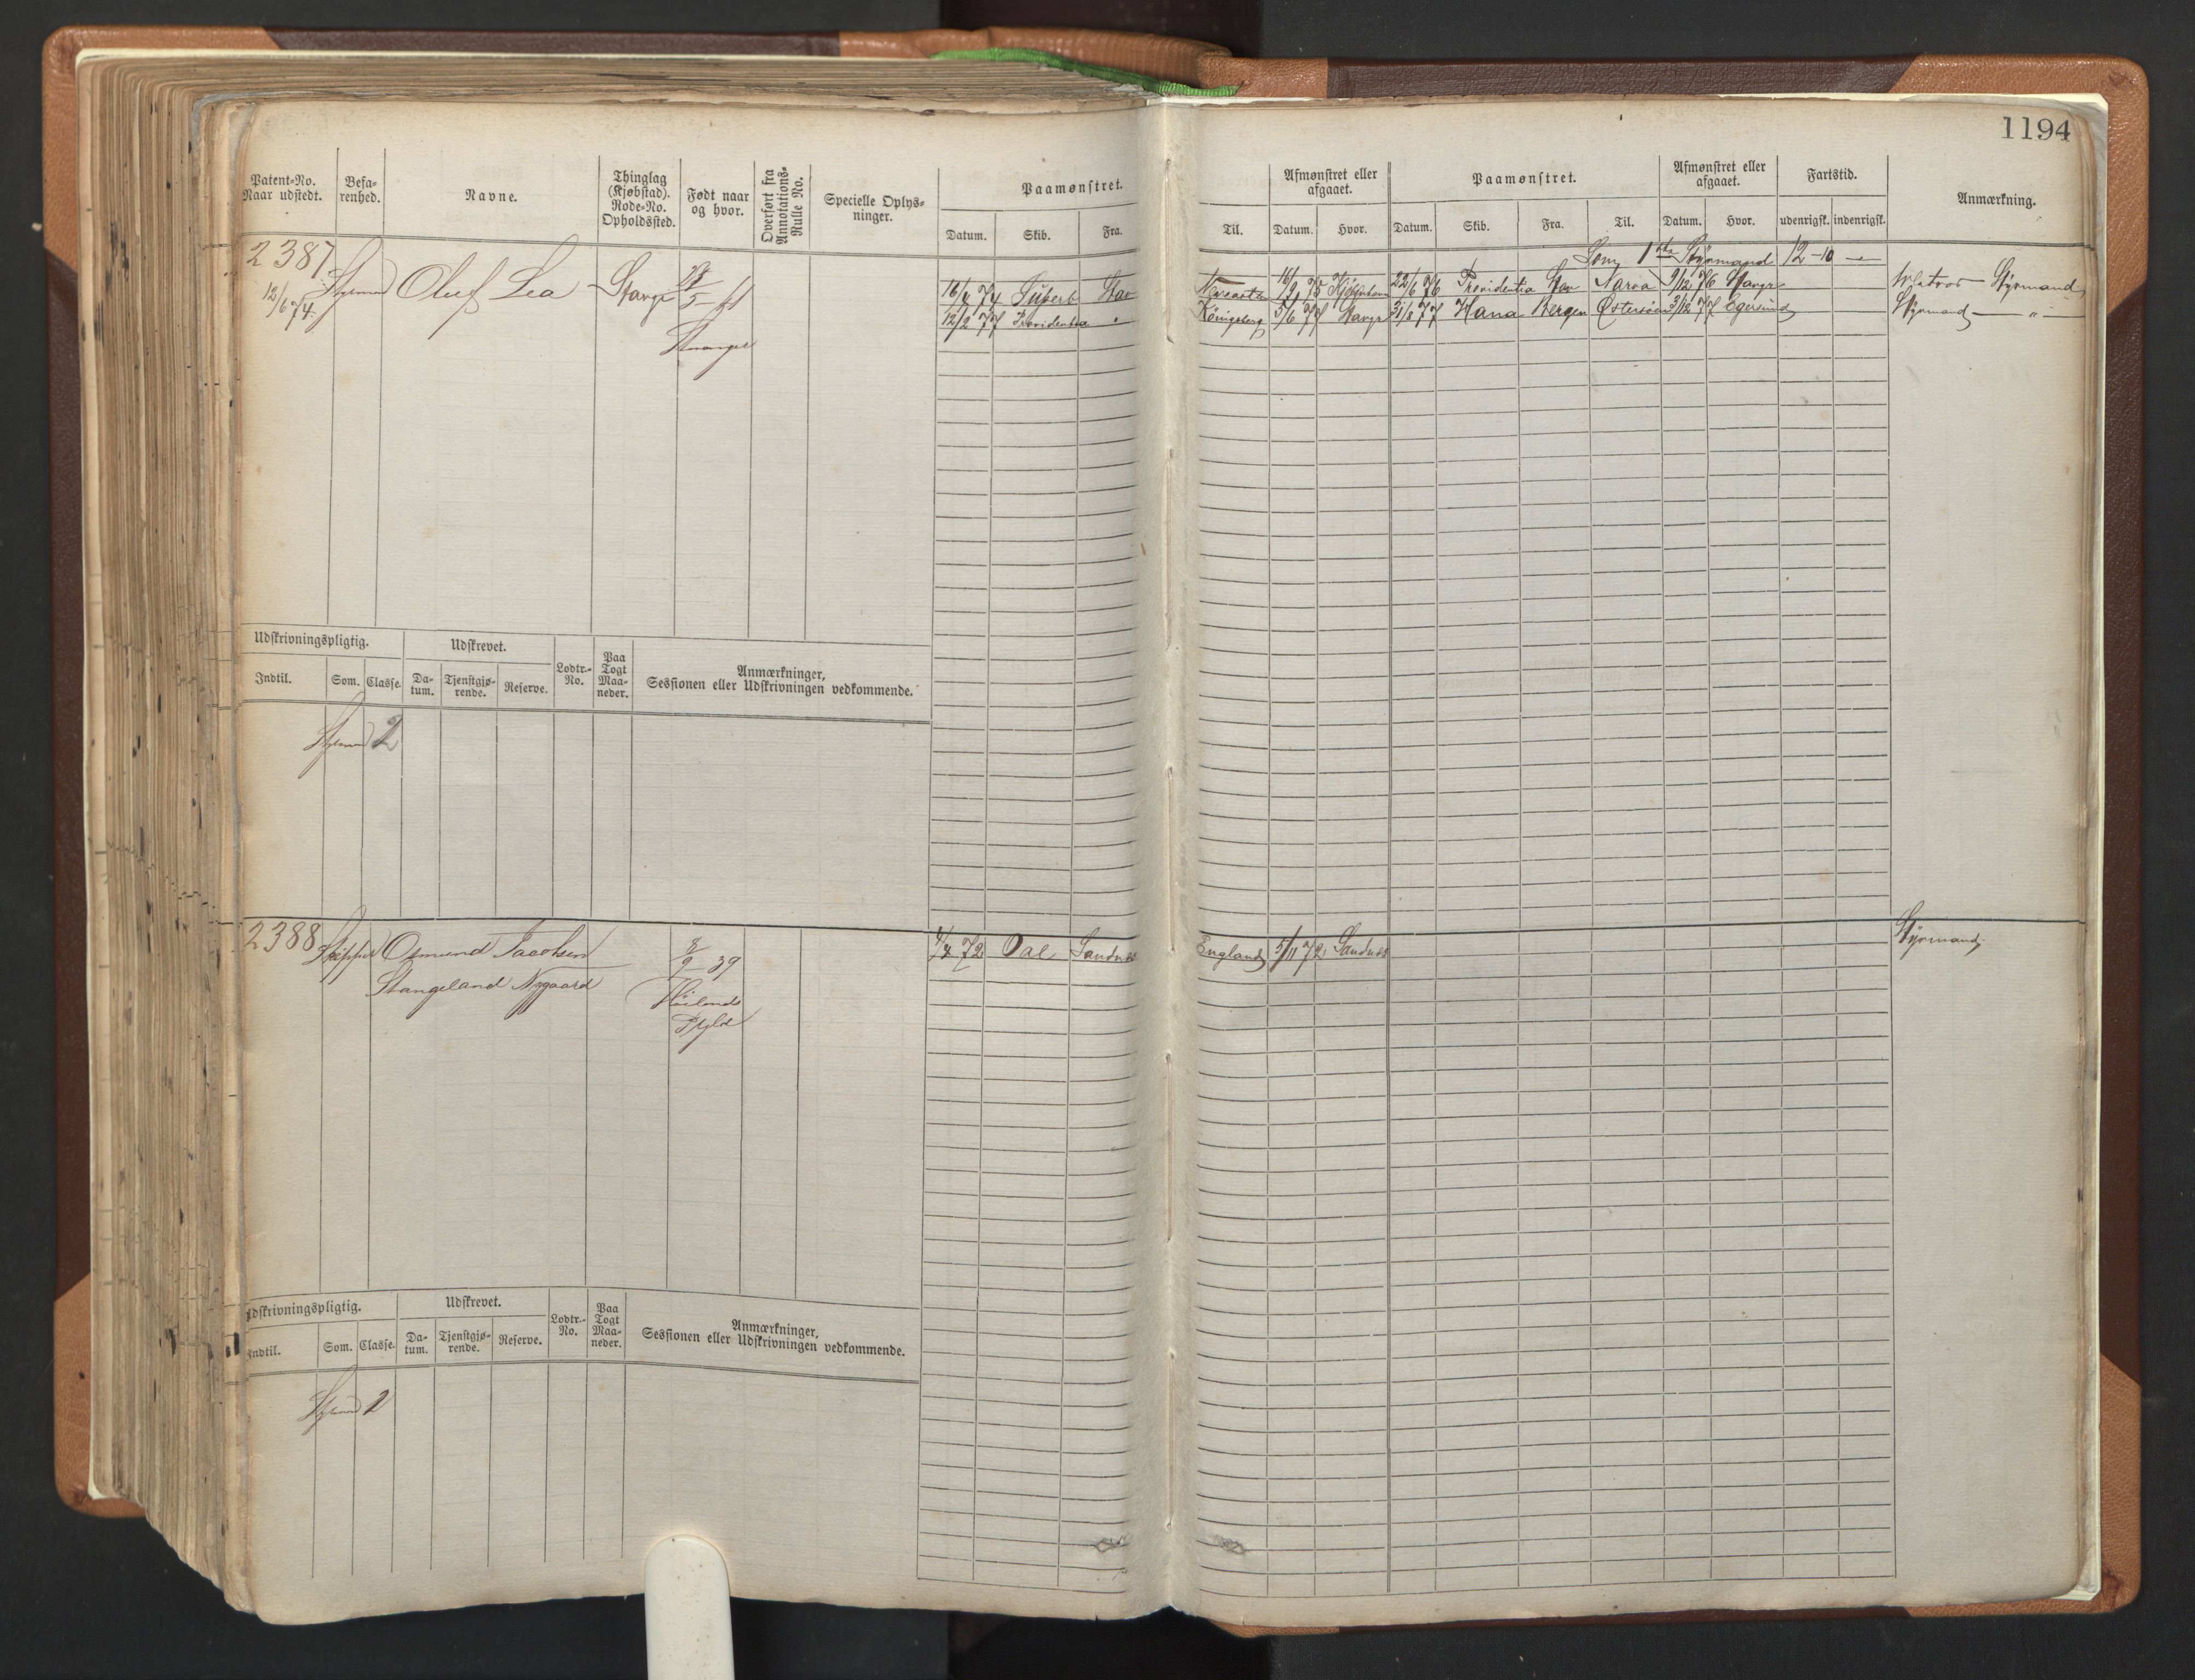 1194
Patent-No. Naar udstedt. Befarenhed. Navne. Thinglag (Kjøbstad). Rode-No. Opholdssted. Født naar og hvor. Overført fra Annotations-Rulle No. Specielle Oplysninger. Paamønstret. Datum. Skib. Fra. Til. Afmønstret eller afgaaet. Datum. Hvor. Paamønstret. Datum. Skib. Fra. Til. Afmønstret eller afgaaet. Datum. Hvor. Fartstid. udenrigsk. indenrigsk. Anmærkning.
Som 1ste Styrmand 12-10 -
2387 Styrmd Oluf Lea Stavgr 5-41 16/4 74 Superb Stav 16/9 75 22/6 76 Providentia Stav Narva 9/12 76 Stavgr Matros - Styrmand
12/6 74. 12/2 77 Providentia " Königsberg 3/6 77 Stavgr 31/8 77 Hana Bergen Østersøen 3/12 77 Egersund Styrmand - " -
Stavanger
Udskrivningspligtig. Udskrevet. Lodtr.-No. Paa Togt Maaneder. Anmærkninger, Sessionen eller Udskrivningen vedkommende.
Indtil. Som. Classe. Datum. Tjenstgjørende. Reserve.
Styrmd 2
2388 Skipper Osmund Jacobsen 8/9-39 4/4 72 Dal Sandnes England 5/11 72 Sandnes Styrmand
Stangeland Nygaard Höilands
Pgld
Udskrivningspligtig. Udskrevet. Lodtr.-No. Paa Togt Maaneder. Anmærkninger, Sessionen eller Udskrivningen vedkommende.
Indtil. Som. Classe. Datum. Tjenstgjørende. Reserve.
Styrmd 2